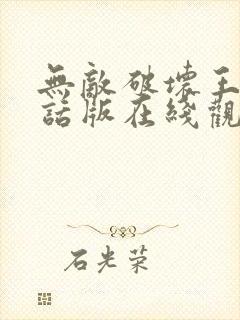 無敵破壞王
話版在綫觀
石光荣